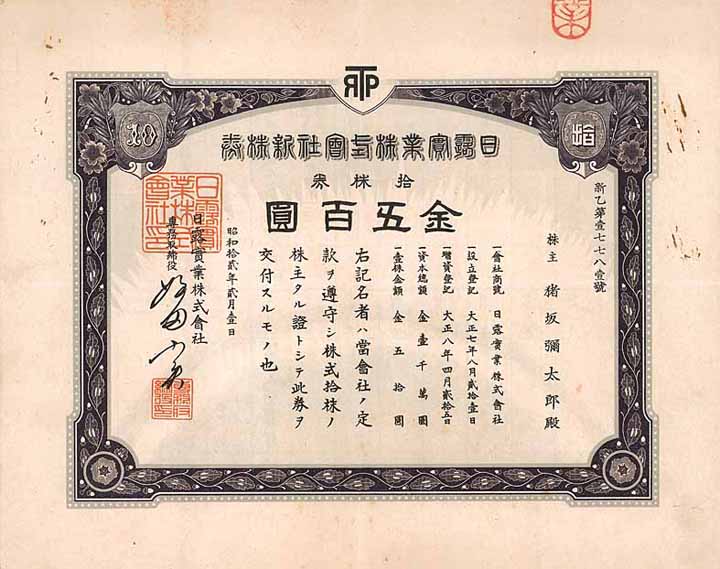 RTP
拾
10
日露實業株式會社新株券
拾株券
金五百圓
新乙第壹七七八壹號
株主 猪坂彌太郎殿
一會社商號 日露實業株式會社
一設立登記 大正七年八月貳拾壹日
一增資登記 大正八年四月貳拾五日
一資本總額 金壹千萬圓
一壹株金額 金五拾圓
右記名者ハ當會社ノ定
款ヲ遵守シ株式拾株ノ
株主タル證トシテ此券ヲ
交付スルモノ也
昭和拾貳年貳月壹日
日露實業株式會社
專務取締役